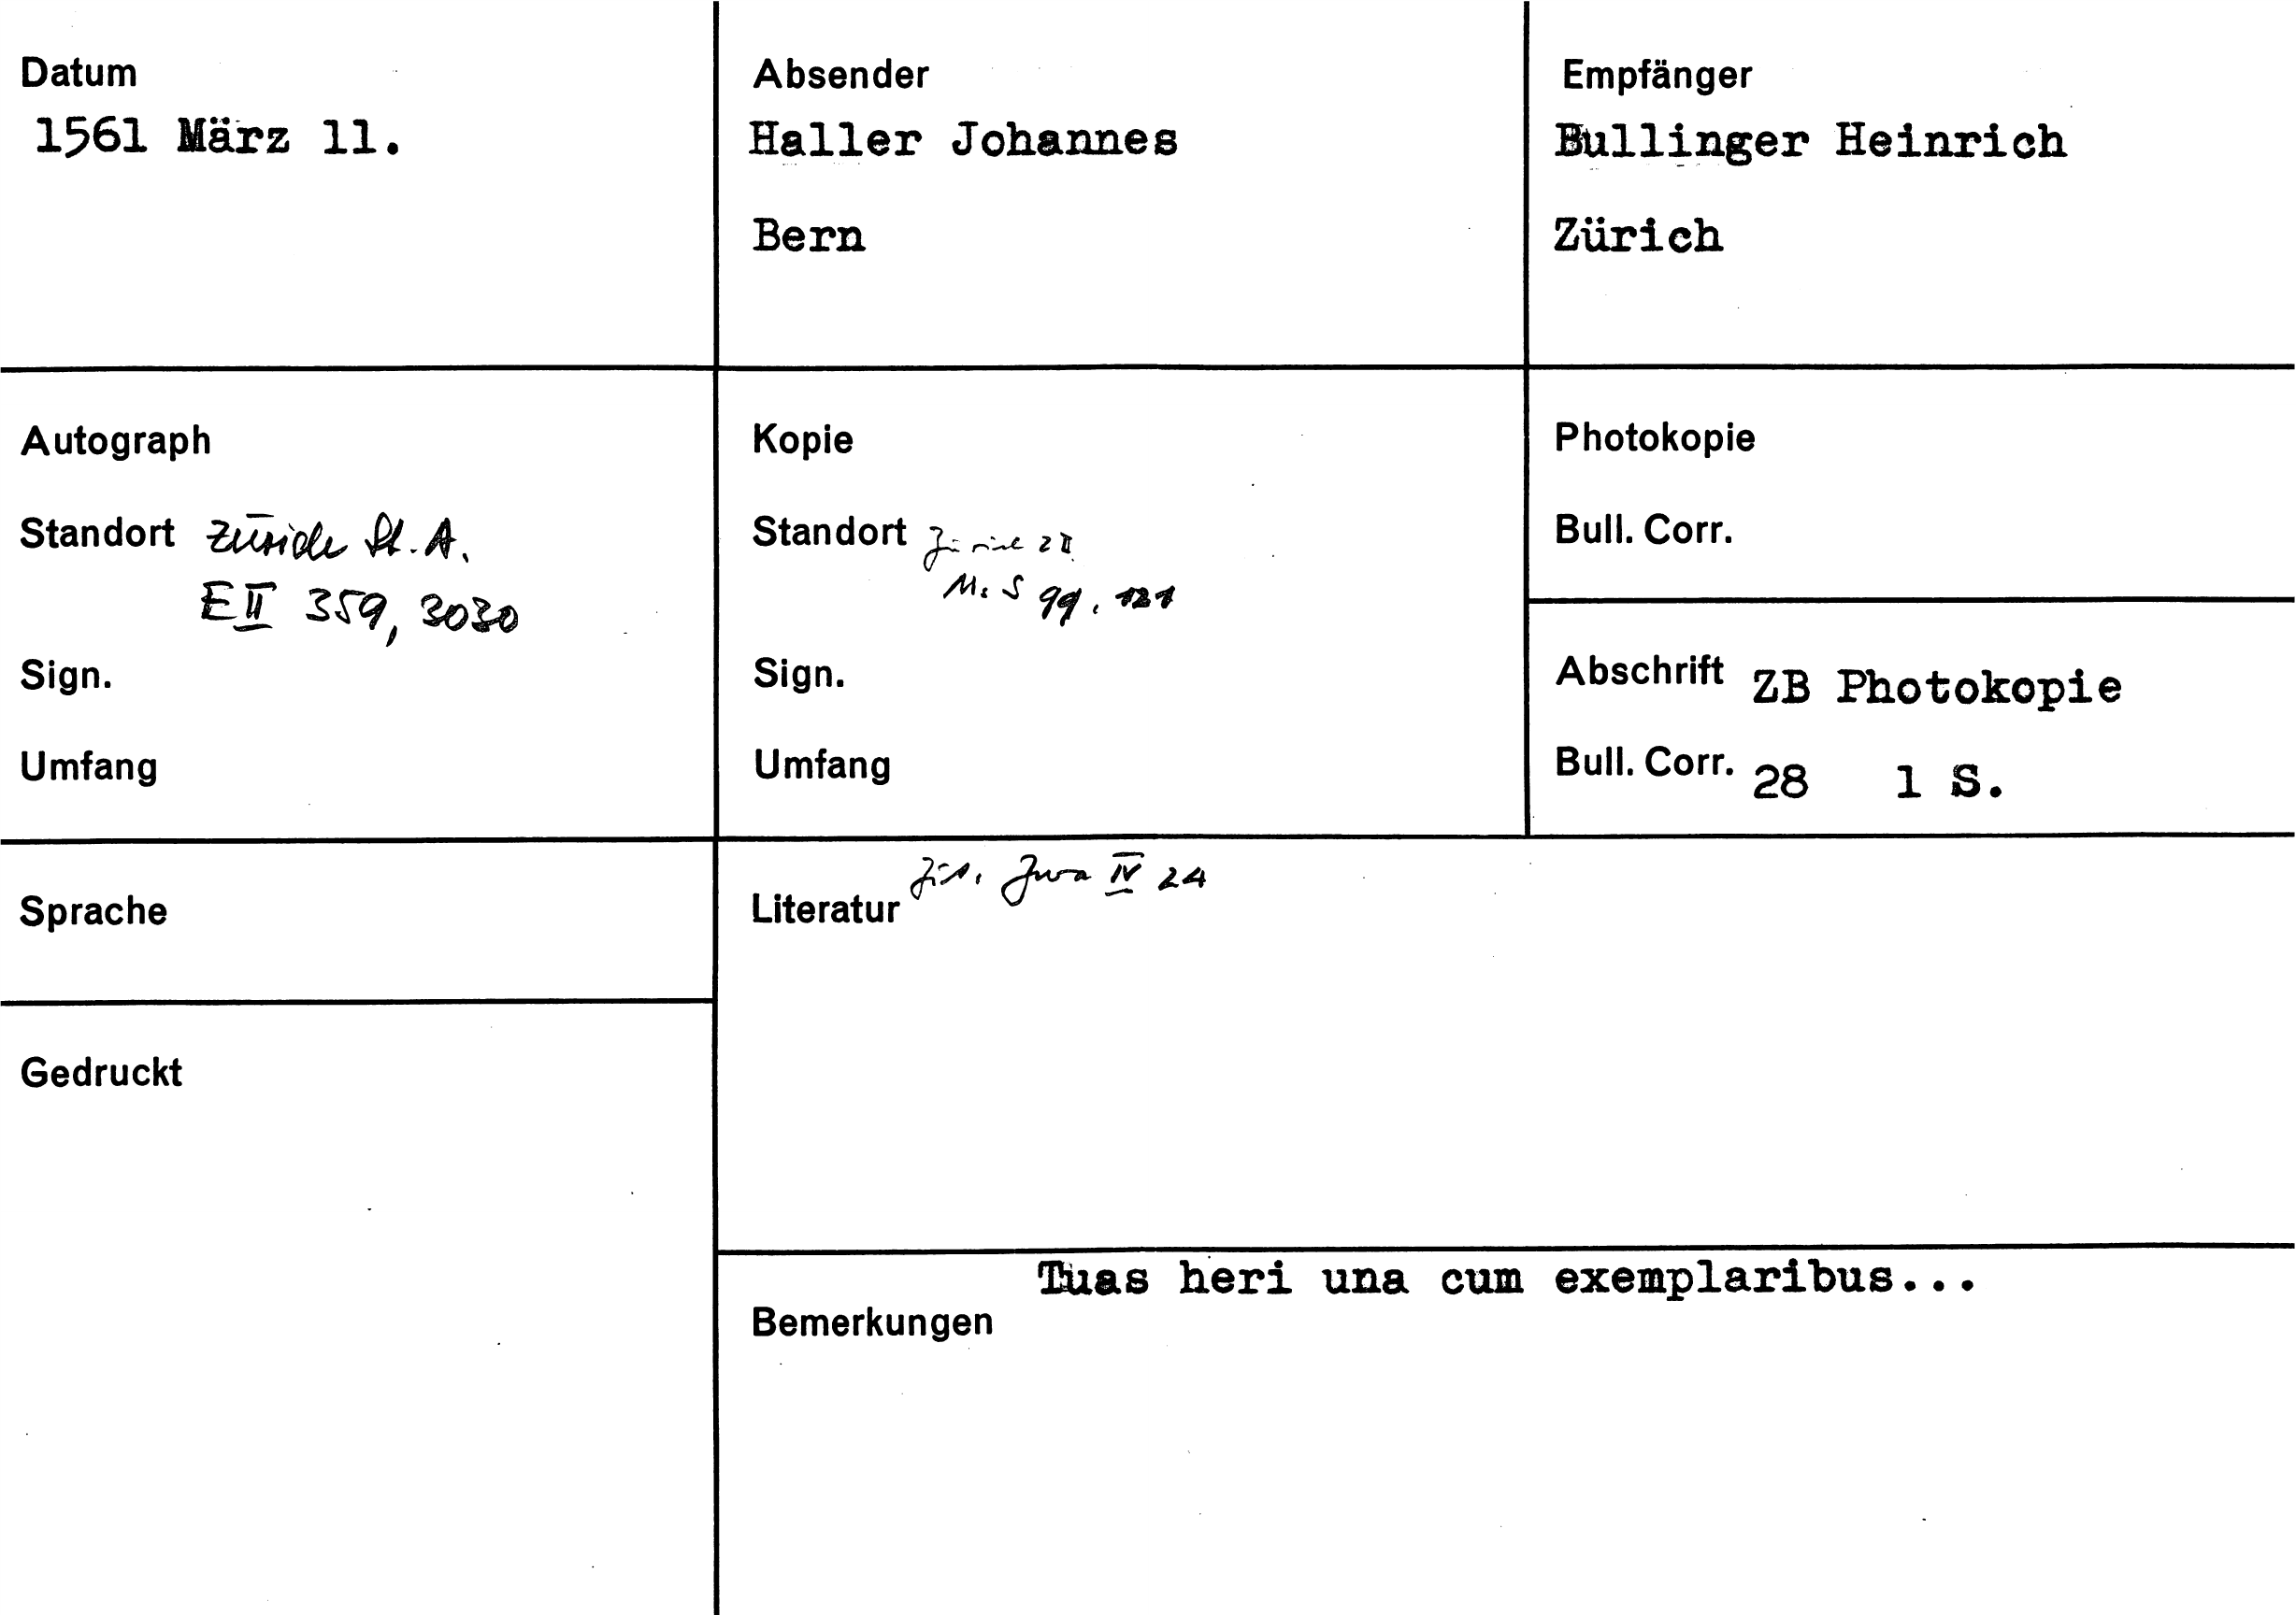 Datum
1561 März 11.
Absender
Haller Johannes
Bern
Empfänger
Bullinger Heinrich
Zürich
Autograph
Standort Zürich St. A.
E II 359, 3030
Sign.
Umfang
Kopie
Standort Zürich
Ms S 99, 121
Sign.
Umfang
Photokopie
Bull. Corr.
Abschrift ZB Photokopie
Bull. Corr. 28 1 S.
Sprache
Gedruckt
Literatur Zwa IV 24
Bemerkungen Tuas heri una cum exemplaribus...